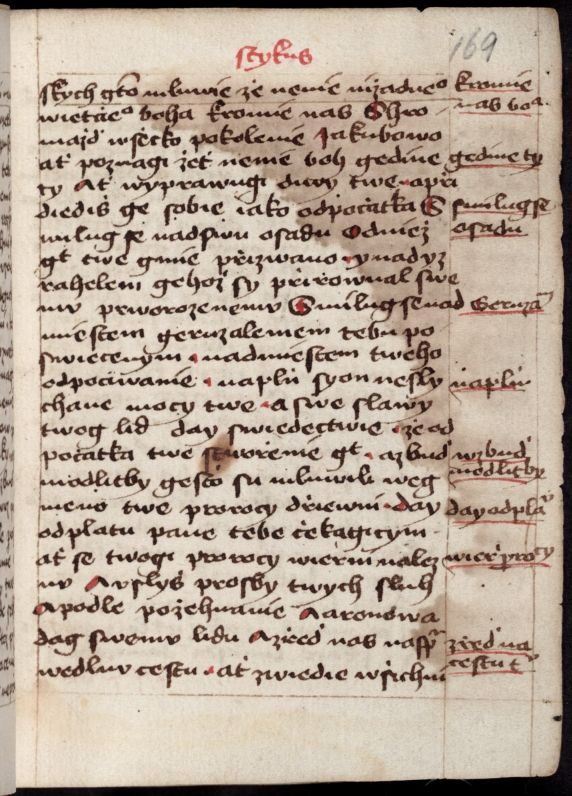 169
stykus
skych gto mluwie že nenie nizadneo kromie
wietčieo boha kromie nas Shro
mazd wšečko pokolenie Jakubowo
ať poznagi žeť nenie boh gedine
ty Ať wyprawugi diwy twe a při
diediš ge sobie iako od počatka S
milug se nad swu osadu od niež
gt twe gmie přizwano y nad yz
rahelem gehož sy přirownal swe
mu prworozenemu Smilug se nad
miestem geruzalemem tebu po
swiecenym nad miestem tweho
odpočiwanie naplň syon nesly
chane mocy twe a swe slawy
tweg lid day swiedectwie že od
počatka twe stworenie gt a zbuď
modlitby gesto su mluwili weg
meno twe prorocy dřiewni day
odplatu pane tebe čekagicym
ať se twogi prorocy wierni nalez
nu A uslyš prosby twych sluh
A podle požehnanie Aaronowa
dag swemu lidu A zřeď nas na sp
wedlnu cestu ať zwiedie wšichni
nas bo
gedine ty
smilug se
osadu
Geruza
naplň
wzbuď
modlitby
day odpla
wier procy
zřeď na
cestu t